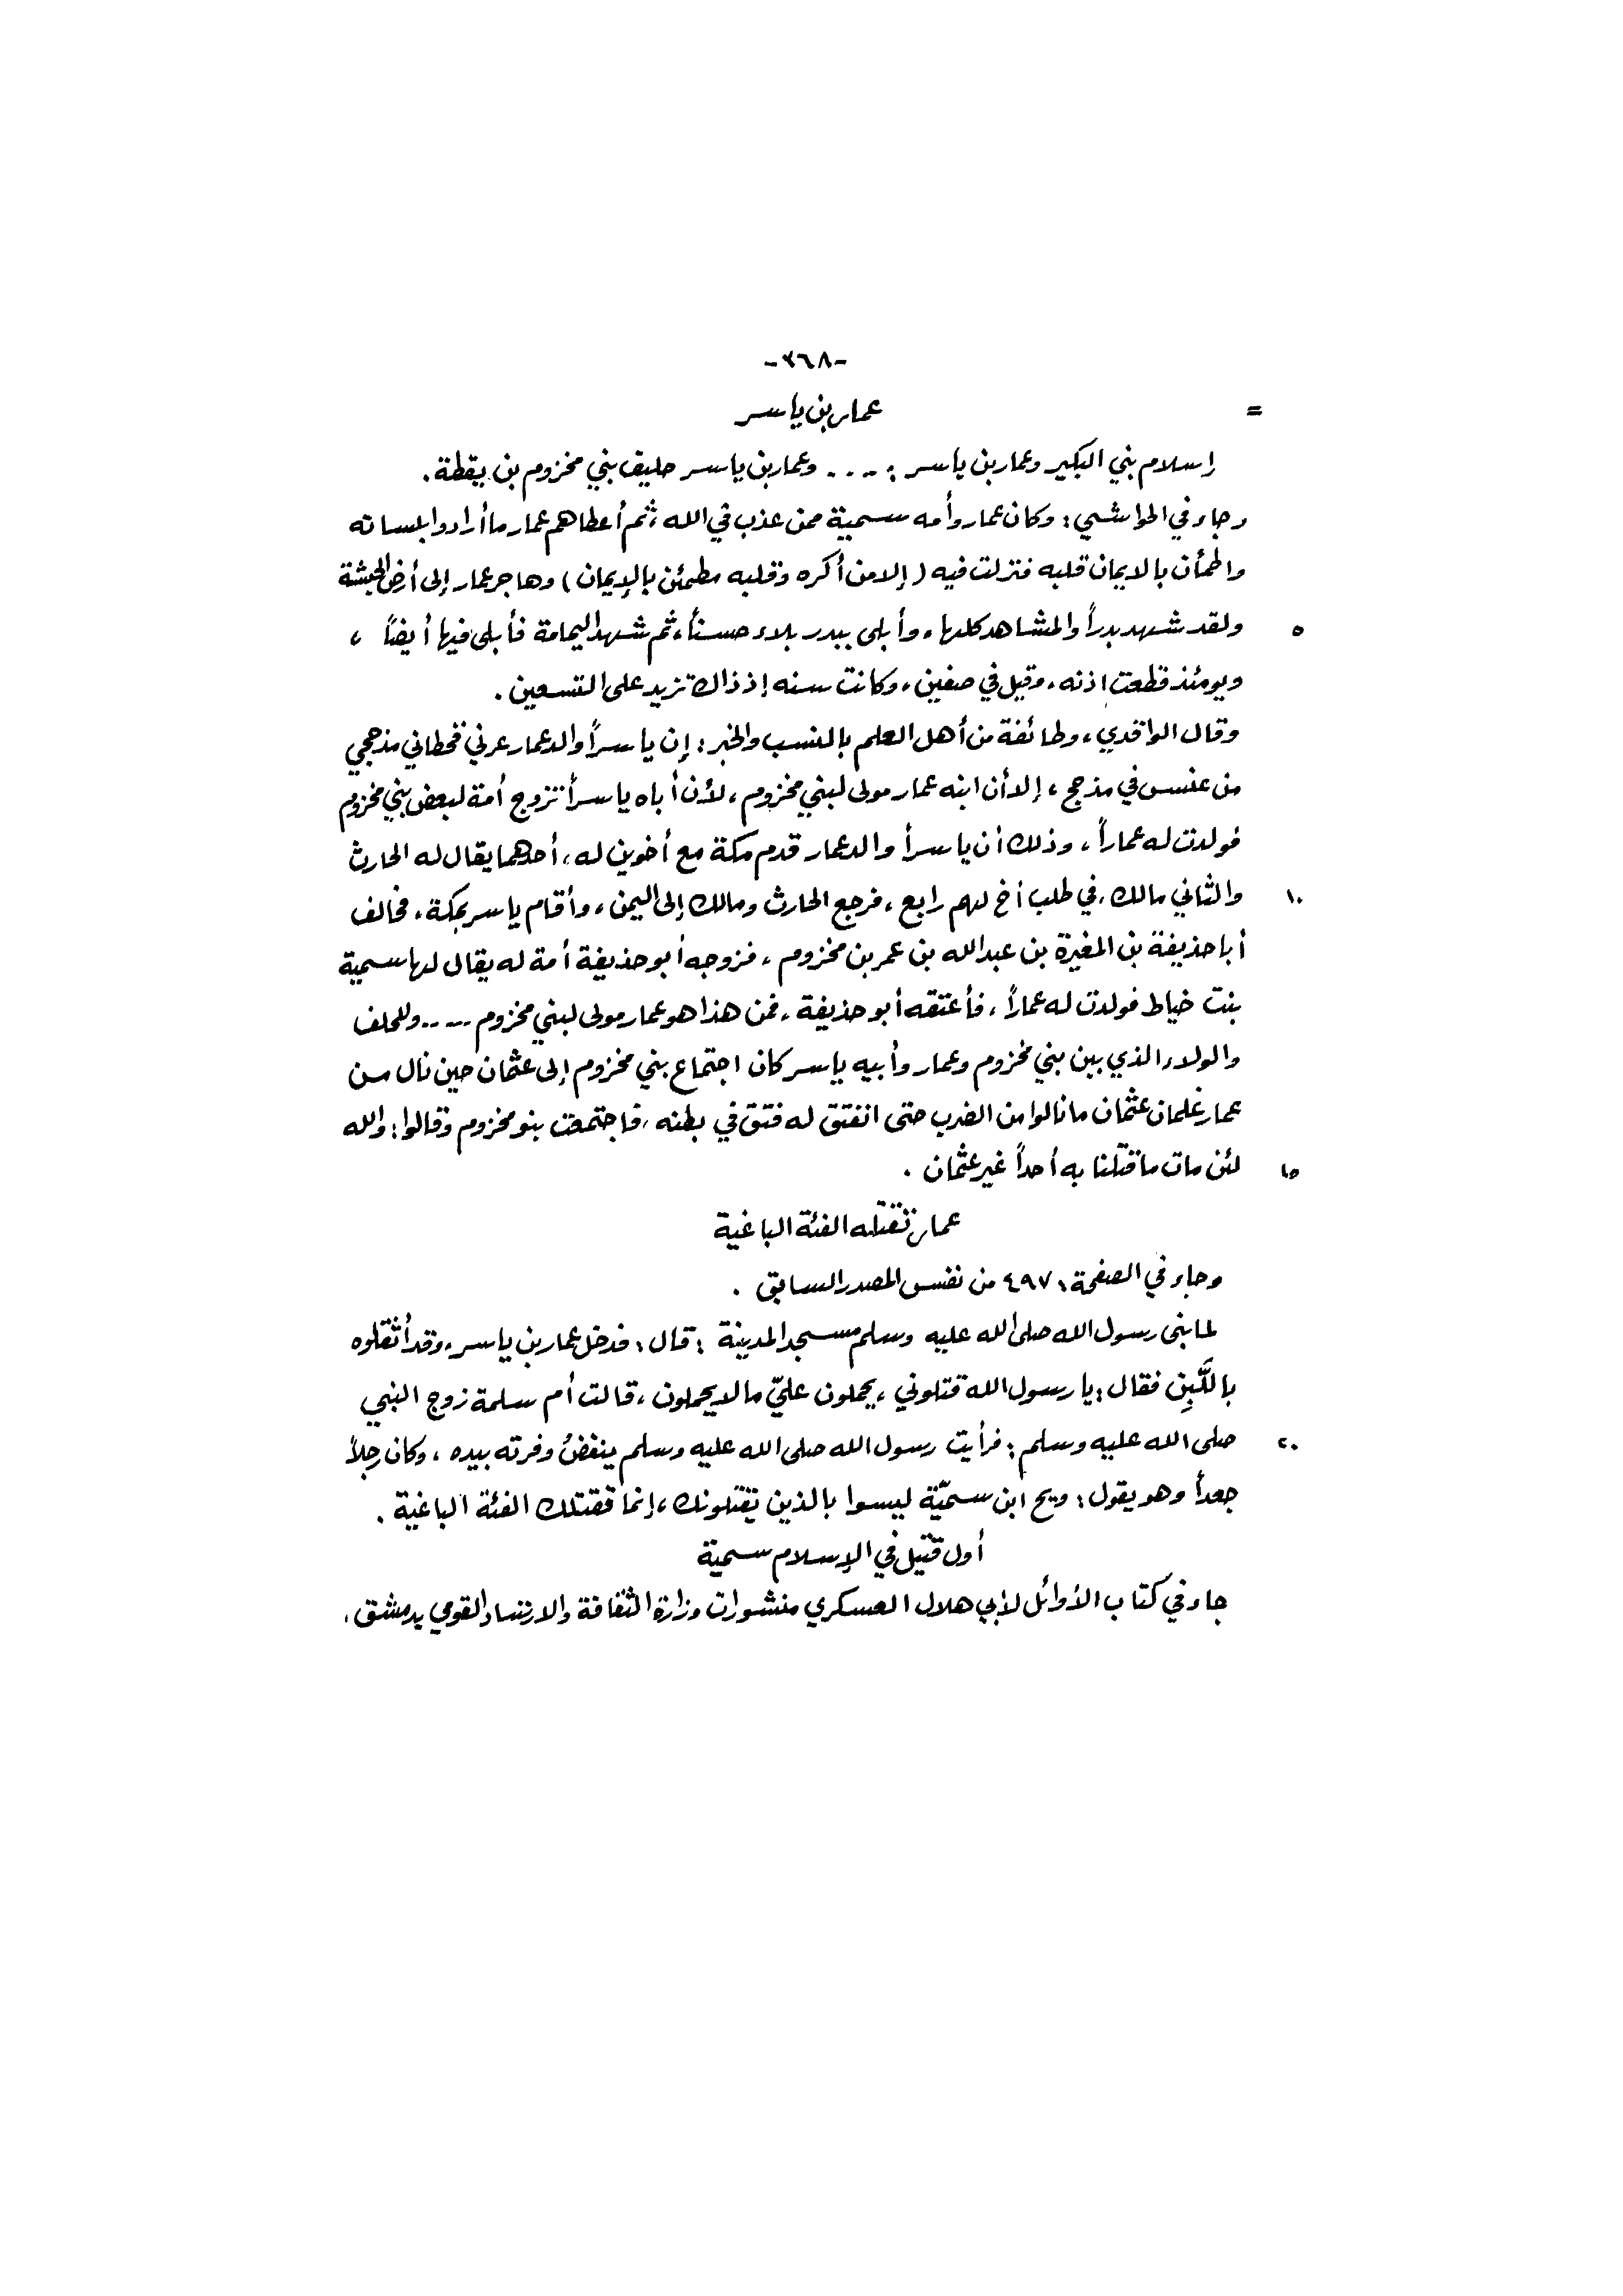 -٣٦٨-
= عمار بن ياسر
إسلام بني البكير وعمار بن ياسر : .... وعمار بن ياسر حليف بني مخزوم بن يقظة.
وجاء في الحواشي: وكان عمار وأمه سمية ممن عذب في الله، ثم أعطاهم عمار ما أرادوا بلسانه
واطمأن بالايمان قلبه فنزلت فيه (إلا من أكره وقلبه مطمئن بالإيمان) وهاجر عمار إلى أرض الحبشة
٥ ولقد شهد بدراً والمشاهد كلها، وأبلى ببدر بلاء حسناً، ثم شهد اليمامة فأبلى فيها أيضاً ،
ويومئذ قطعت اذنه، وقيل في صفين، وكانت سنه إذ ذاك تزيد على التسعين.
وقال الواقدي، وطائفة من أهل العلم بالنسب والخبر: إن ياسراً والد عمار عرني قحطاني مذحجي
من عنس في مذحج، إلا أن ابنه عمار مولى لبني مخزوم، لأن أباه ياسراً تزوج أمة لبعض بني مخزوم
فولدت له عماراً، وذلك أن ياسراً والد عمار قدم مكة مع أخوين له، أحدهما يقال له الحارث
١٠ والثاني مالك، في طلب أخ لهم رابع، فرجع الحارث ومالك إلى اليمن، وأقام ياسر بمكة، فحالف
أبا حذيفة بن المغيرة بن عبد الله بن عمر بن مخزوم، فزوجه أبو حذيفة أمة له يقال لها سمية
بنت خياط فولدت له عماراً، فأعتقه أبو حذيفة، فمن هذا هو عمار مولى لبني مخزوم ..... وللحلف
والولاء الذي بين بني مخزوم وعمار وأبيه ياسر كان اجتماع بني مخزوم إلى عثمان حين نال من
عمار غلمان عثمان ما نالوا من الضرب حتى انفتق له فتق في بطنه، فاجتمعت بنو مخزوم وقالوا: والله
١٥ لئن مات ما قتلنا به أحداً غير عثمان .
عمار تقتله الفئة الباغية
وجاء في الصفحة: ٤٩٧ من نفس المصدر السابق .
لما بنى رسول الله صلى الله عليه وسلم مسجد المدينة : قال: فدخل عمار بن ياسر، وقد أثقلوه
بالَّلبِن فقال: يا رسول الله قتلوني، يحملون عليّ ما لا يحملون، قالت أم سلمة زوج النبي
٢٠ صلى الله عليه وسلم: فرأيت رسول الله صلى الله عليه وسلم ينفضُ وفرته بيده ، وكان رجلاً
جعداً وهو يقول: ويح ابن سميّة ليسوا بالذين يقتلونك، إنما تقتلك الفئة الباغية .
أول قتيل في الإسلام سمية
جاء في كتاب الأوائل لأبي هلال العسكري منشورات وزارة الثقافة والارشاد القومي بدمشق ،